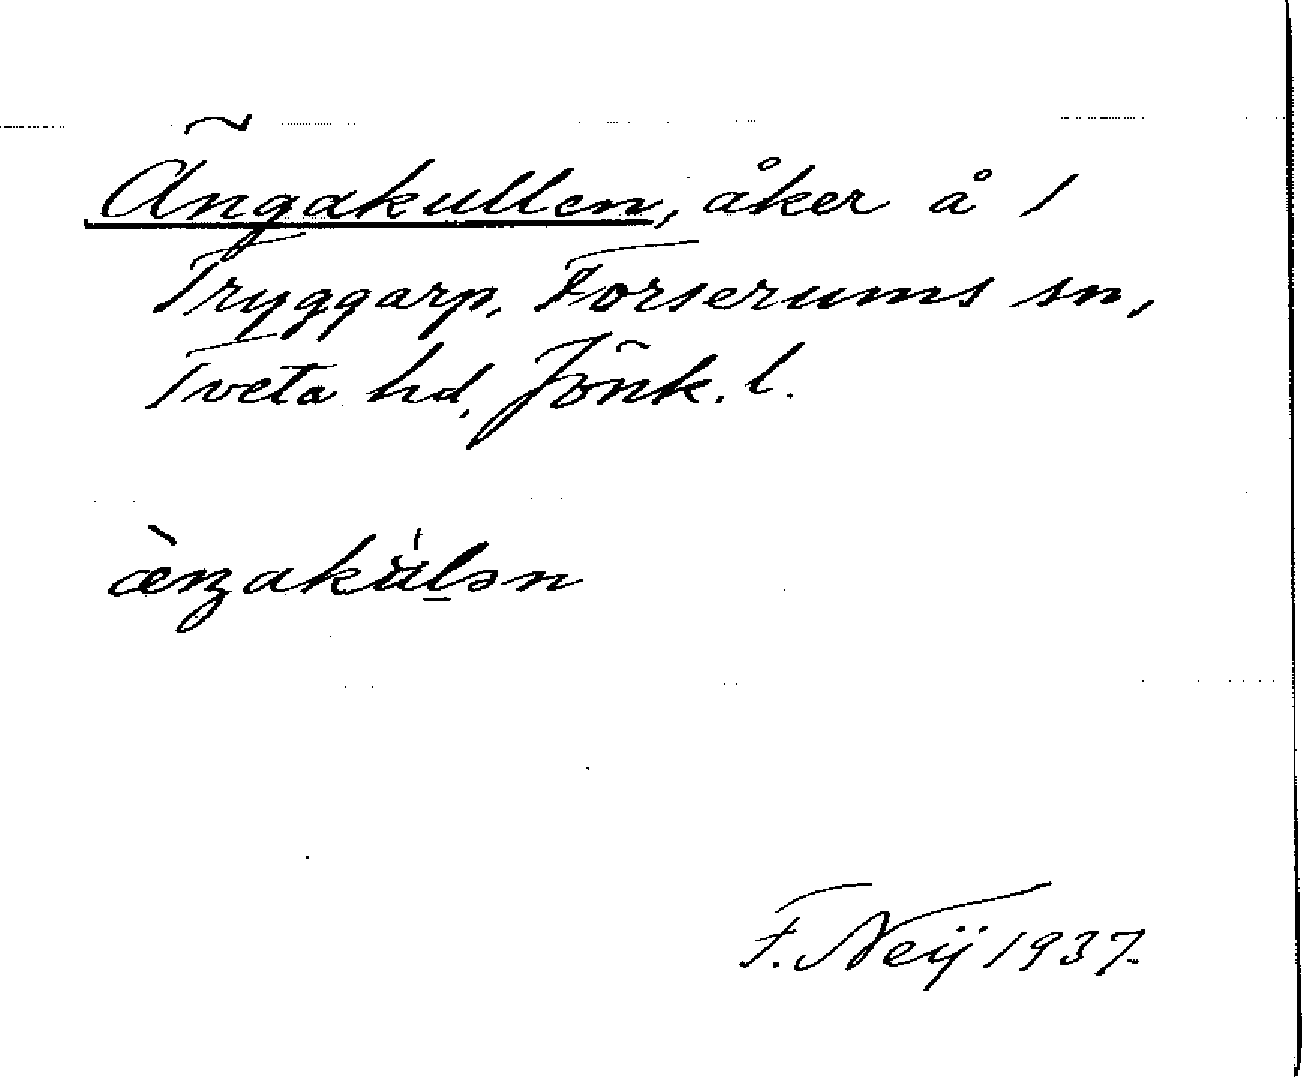 Ängakullen, åker å 1
Tryggarp, Forserums sn,
Tveta hd, Jönk. l.
F. Neij 1937.